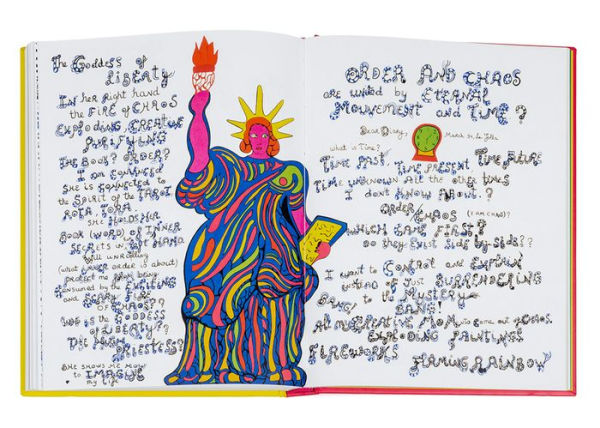 The GODDESS OF
LIBERTY
IN her RIGHT hand
the FIRE OF CHAOS
EXPLODING CREATIVE
PURIFYING
THE BOOK? ORDER?
I am CONVINCED
SHE is CONNECTED to
the SPIRIT of the TAROT
ROTA, TORA.
SHE HOLDS HER
BOOK (WORD) OF INNER
SECRETS in her HAND
Will UNRAVELLING
(what INNER ORDER is about)
PROTECT me from being
CONSUMED by the EXCITING
and SCARY FIRE
OF CHAOS??
WHO is the GODDESS
OF LIBERTY??
THE HIGH
PRIESTESS?
SHE SHOWS ME HOW
to IMAGINE
my life
ORDER AND CHAOS
are united by ETERNAL
MOVEMENT AND TIME?
Dear Diary,
what is Time?
TIME PAST, TIME PRESENT, TIME FUTURE
TIME UNKNOWN All the other TIMES
I don't KNOW ABOUT.?
ORDER
CHAOS (I AM CHAOS)?
WHICH CAME FIRST?
Do they EXIST SIDE by SIDE??
I want to CONTROL and EXPLAIN
instead of just SURRENDERING
to the MYSTERY
BANG!
to come out of CHAOS.
EXPLODING PAINTINGS
FIREWORKS FLAMING RAINBOW